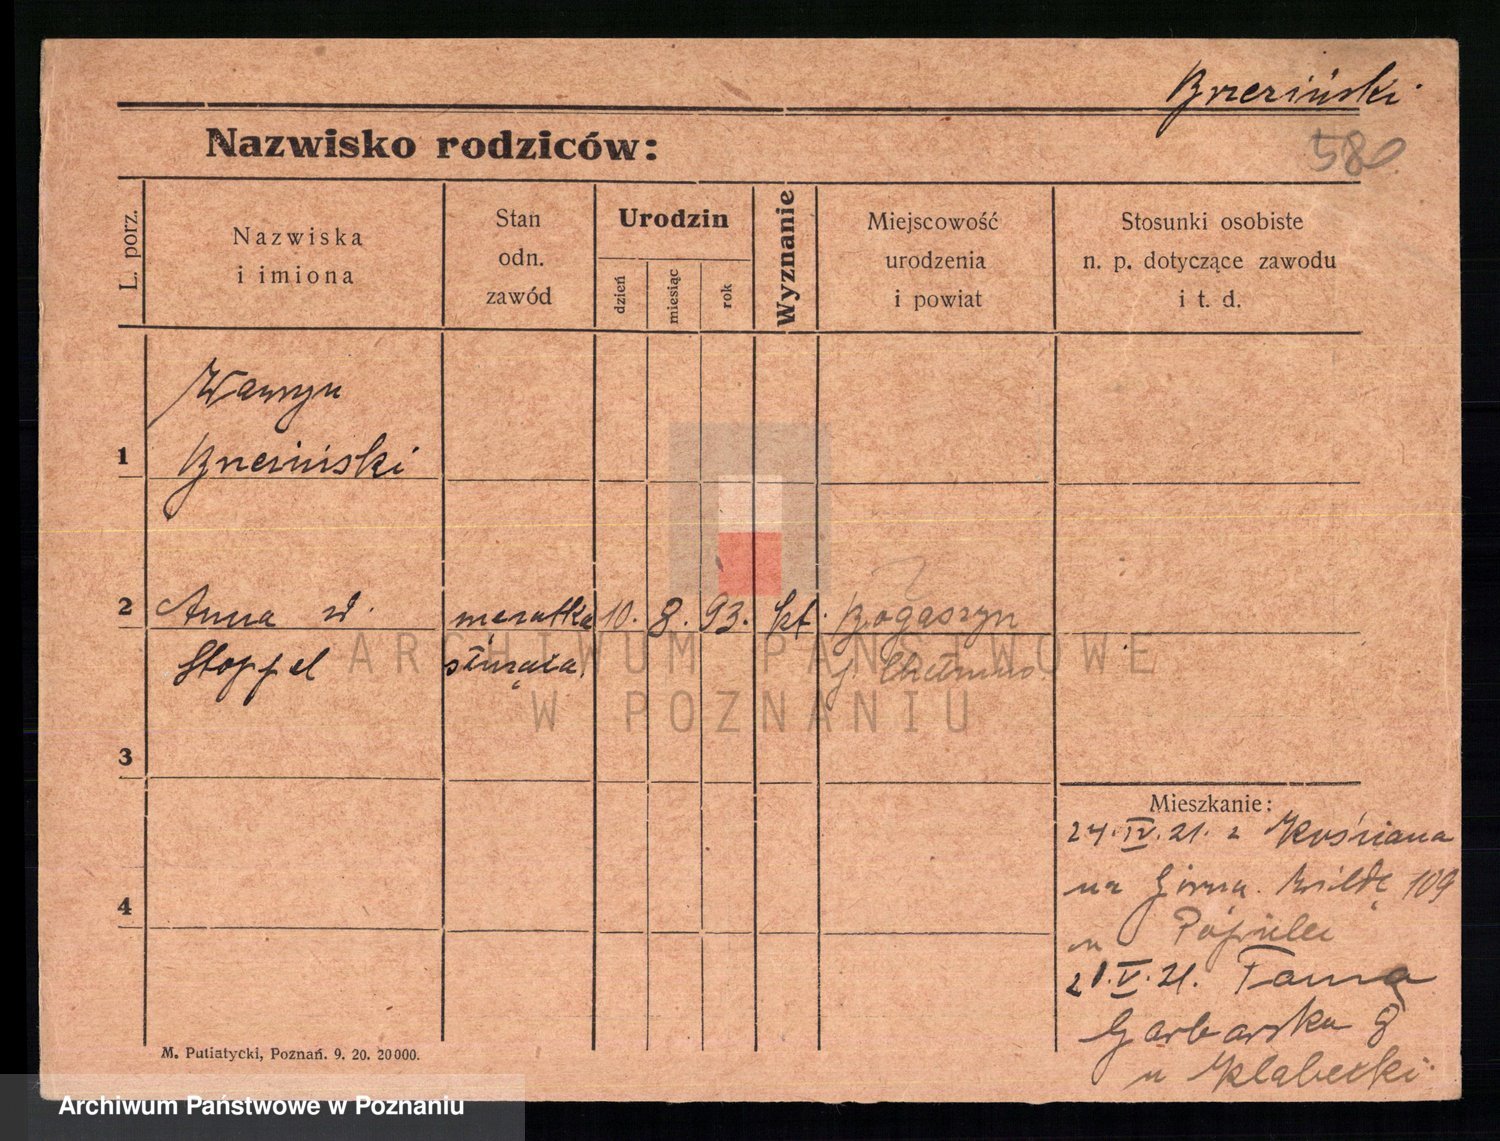 Brzeziński
580
Nazwisko rodziców:
L. porz.
Nazwiska
i imiona
Stan
odn.
zawód
Urodzin
dzień
miesiąc
rok
Wyznanie
Miejscowość
urodzenia
i powiat
Stosunki osobiste
n. p. dotyczące zawodu
i t. d.
1
Wawrzyn
Brzeziński
2
Anna z d. mężatka 10. 8. 93. kt.
Stoppel służąca.
ARCHIWUM PAŃSTWOWE
W POZNANIU
3
4
Mieszkanie:
24.IV.21. z Kościana
na Górną Wildę 109
u
21.V.21. Tama
Garbarska 8
u
M. Putiatycki, Poznań. 9. 20. 20000.
Archiwum Państwowe w Poznaniu